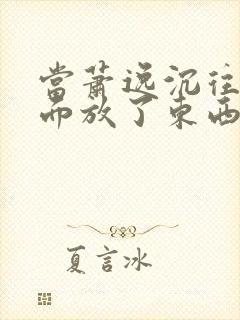 當蕭逸沉往
而放了東西
夏言冰